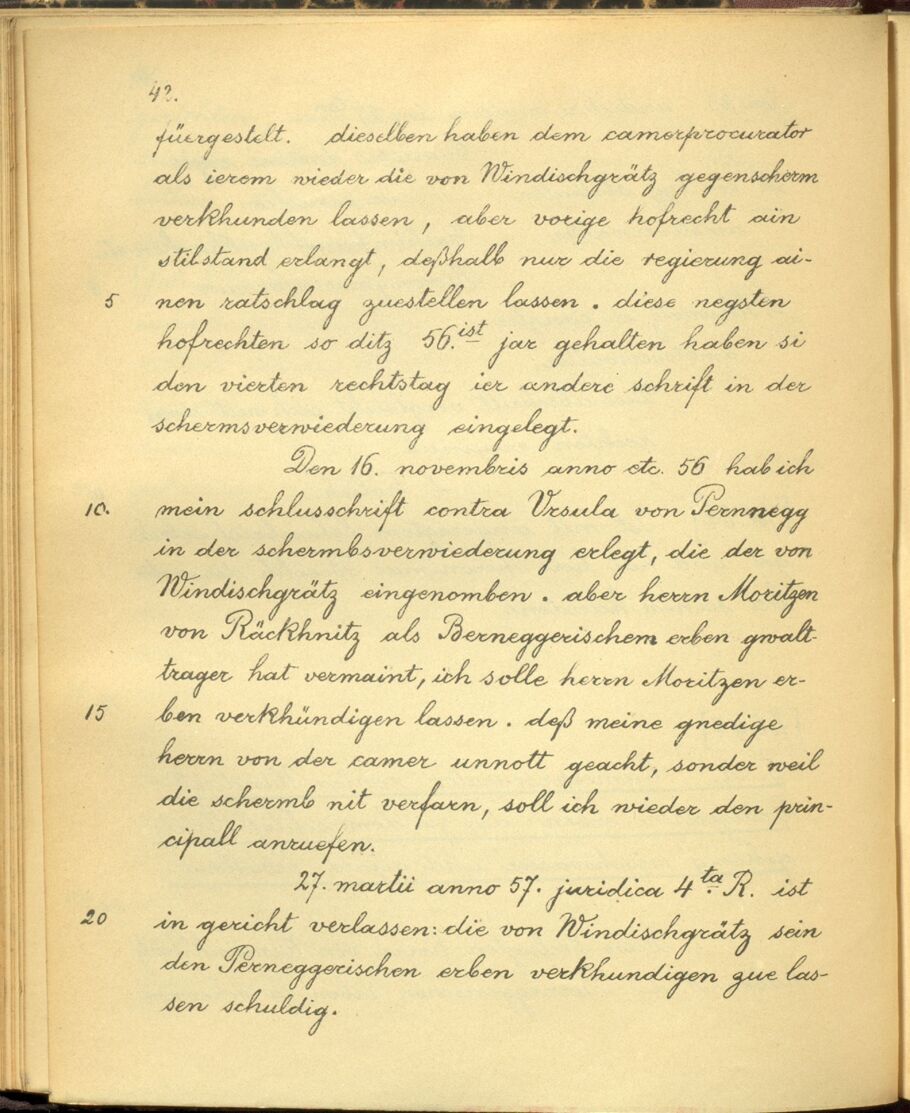 42.
füergestelt. dieselben haben dem camerprocurator
als ierem wieder die von Windischgrätz gegenscherm
verkhunden lassen, aber vorige hofrecht ain
stilstand erlangt, deßhalb nur die regierung ai-
5 nen ratschlag zuestellen lassen. diese negsten
hofrechten so ditz 56.ist jar gehalten haben si
den vierten rechtstag ier andere schrift in der
schermsverwiederung eingelegt.
Den 16. novembris anno etc. 56 hab ich
10. mein schlusschrift contra Ursula von Pernnegg
in der schermbsverwiederung erlegt, die der von
Windischgrätz eingenomben. aber herrn Moritzen
von Räckhnitz als Berneggerischem erben gwalt-
trager hat vermaint, ich solle herrn Moritzen er-
15 ben verkhündigen lassen. deß meine gnedige
herrn von der camer unnott geacht, sonder weil
die schermb nit verfarn, soll ich wieder den prin-
cipall anruefen.
27. martii anno 57. juridica 4ta. R. ist
20 in gericht verlassen: die von Windischgrätz sein
den Perneggerischen erben verkhundigen zue las-
sen schuldig.